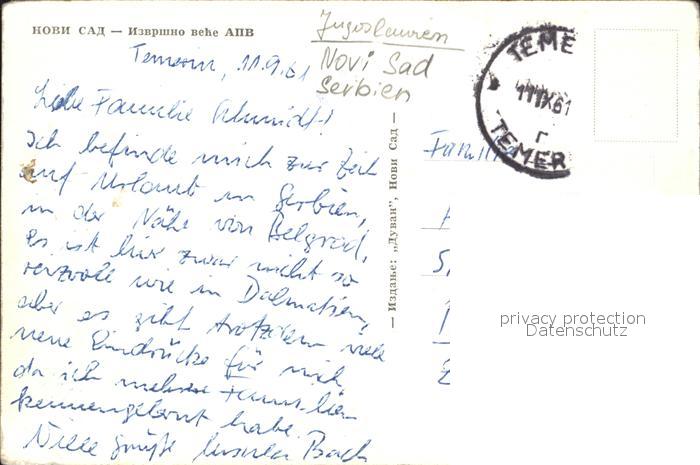 НОВИ САД — Извршно веће АПВ
Jugoslawien
Novi Sad
Serbien
Temerin, 11.9.61
Liebe Familie Schmidt!
Ich befinde mich zur Zeit
auf Urlaub in Serbien,
in der Nähe von Belgrad,
es ist hier zwar nicht so
reizvoll wie in Dalmatien,
aber es gibt trotzdem viele
neue Eindrücke für mich,
da ich mehrere Familien
kennengelernt habe.
Viele Grüße Ursula Bach
— Издање: „Дуван", Нови Сад —
TEME
11 IX 61
г
TEMER
Familie
privacy protection
Datenschutz